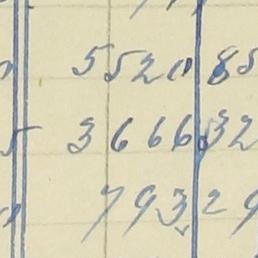 5520 85
5 3666 32
793 29